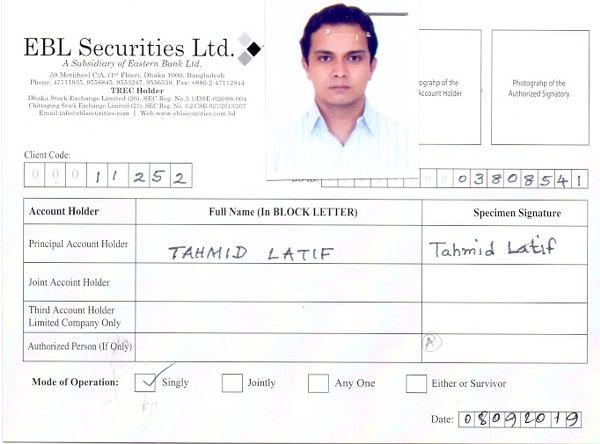 EBL Securities Ltd.
A Subsidiary of Eastern Bank Ltd.
59 Motijheel C/A, (1st Floor), Dhaka 1000, Bangladesh
Phone: 47111935, 9556845, 9553247, 9556539, Fax: +880-2-47112944
TREC Holder
Dhaka Stock Exchange Limited (26), SEC Reg. No.3.1/DSE-026/98-004
Chittagong Stock Exchange Limited (21), SEC Reg. No. 3.2/CSE-021/2013/207
Email:info@eblsecurities.com | Web:www.eblsecurities.com.bd
ograhp of the
Account Holder
Photograhp of the
Authorized Signatory
Client Code:
0 0 0 1 1 2 5 2
0 3 8 0 8 5 4 1
Account Holder Full Name (In BLOCK LETTER) Specimen Signature
Principal Account Holder TAHMID LATIF Tahmid Latif
Joint Accoint Holder
Third Account Holder
Limited Company Only
Authorized Person (If Only) A
Mode of Operation: Singly Jointly Any One Either or Survivor
Date: 08092019